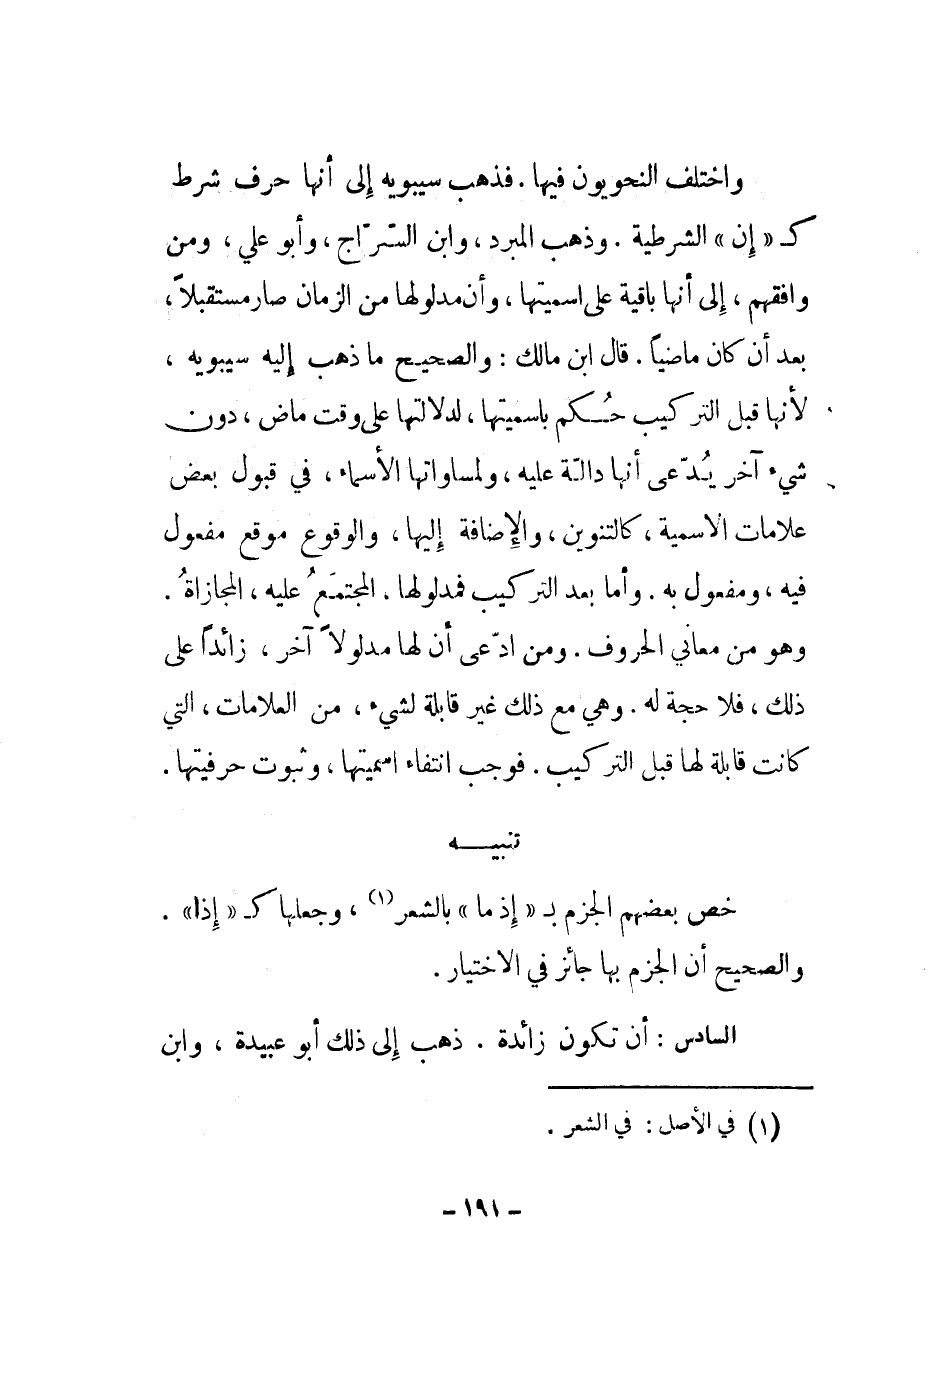 واختلف النحويون فيها . فذهب سيبويه إلى أنها حرف شرط
كـ « إن » الشرطية . وذهب المبرد ، وابن السّرّاج ، وأبو علي ، ومن
وافقهم ، إلى أنها باقية على اسميتها ، وأن مدلولها من الزمان صار مستقبلاً ،
بعد أن كان ماضياً . قال ابن مالك : والصحيح ما ذهب إليه سيبويه ،
لأنها قبل التركيب حُكم باسميتها ، لدلالتها على وقت ماض ، دون
شيء آخر يُدّعى أنها دالّة عليه ، ولمساواتها الأسماء ، في قبول بعض
علامات الاسمية ، كالتنوين ، والإضافة إليها ، والوقوع موقع مفعول
فيه ، ومفعول به . وأما بعد التركيب فمدلولها . المجتمَعُ عليه ، المجازاةُ .
وهو من معاني الحروف . ومن ادّعى أن لها مدلولاً آخر ، زائداً على
ذلك ، فلا حجة له . وهي مع ذلك غير قابلة لشيء ، من العلامات ، التي
كانت قابلة لها قبل التركيب . فوجب انتفاء اسميتها ، وثبوت حرفيتها .
تنبيـــه
خص بعضهم الجزم بـ « إذ ما » بالشعر(١) ، وجعلها كـ « إذا» .
والصحيح أن الجزم بها جائز في الاختيار .
السادس : أن تكون زائدة . ذهب إلى ذلك أبو عبيدة ، وابن
(١) في الأصل : في الشعر .
– ١٩١ –